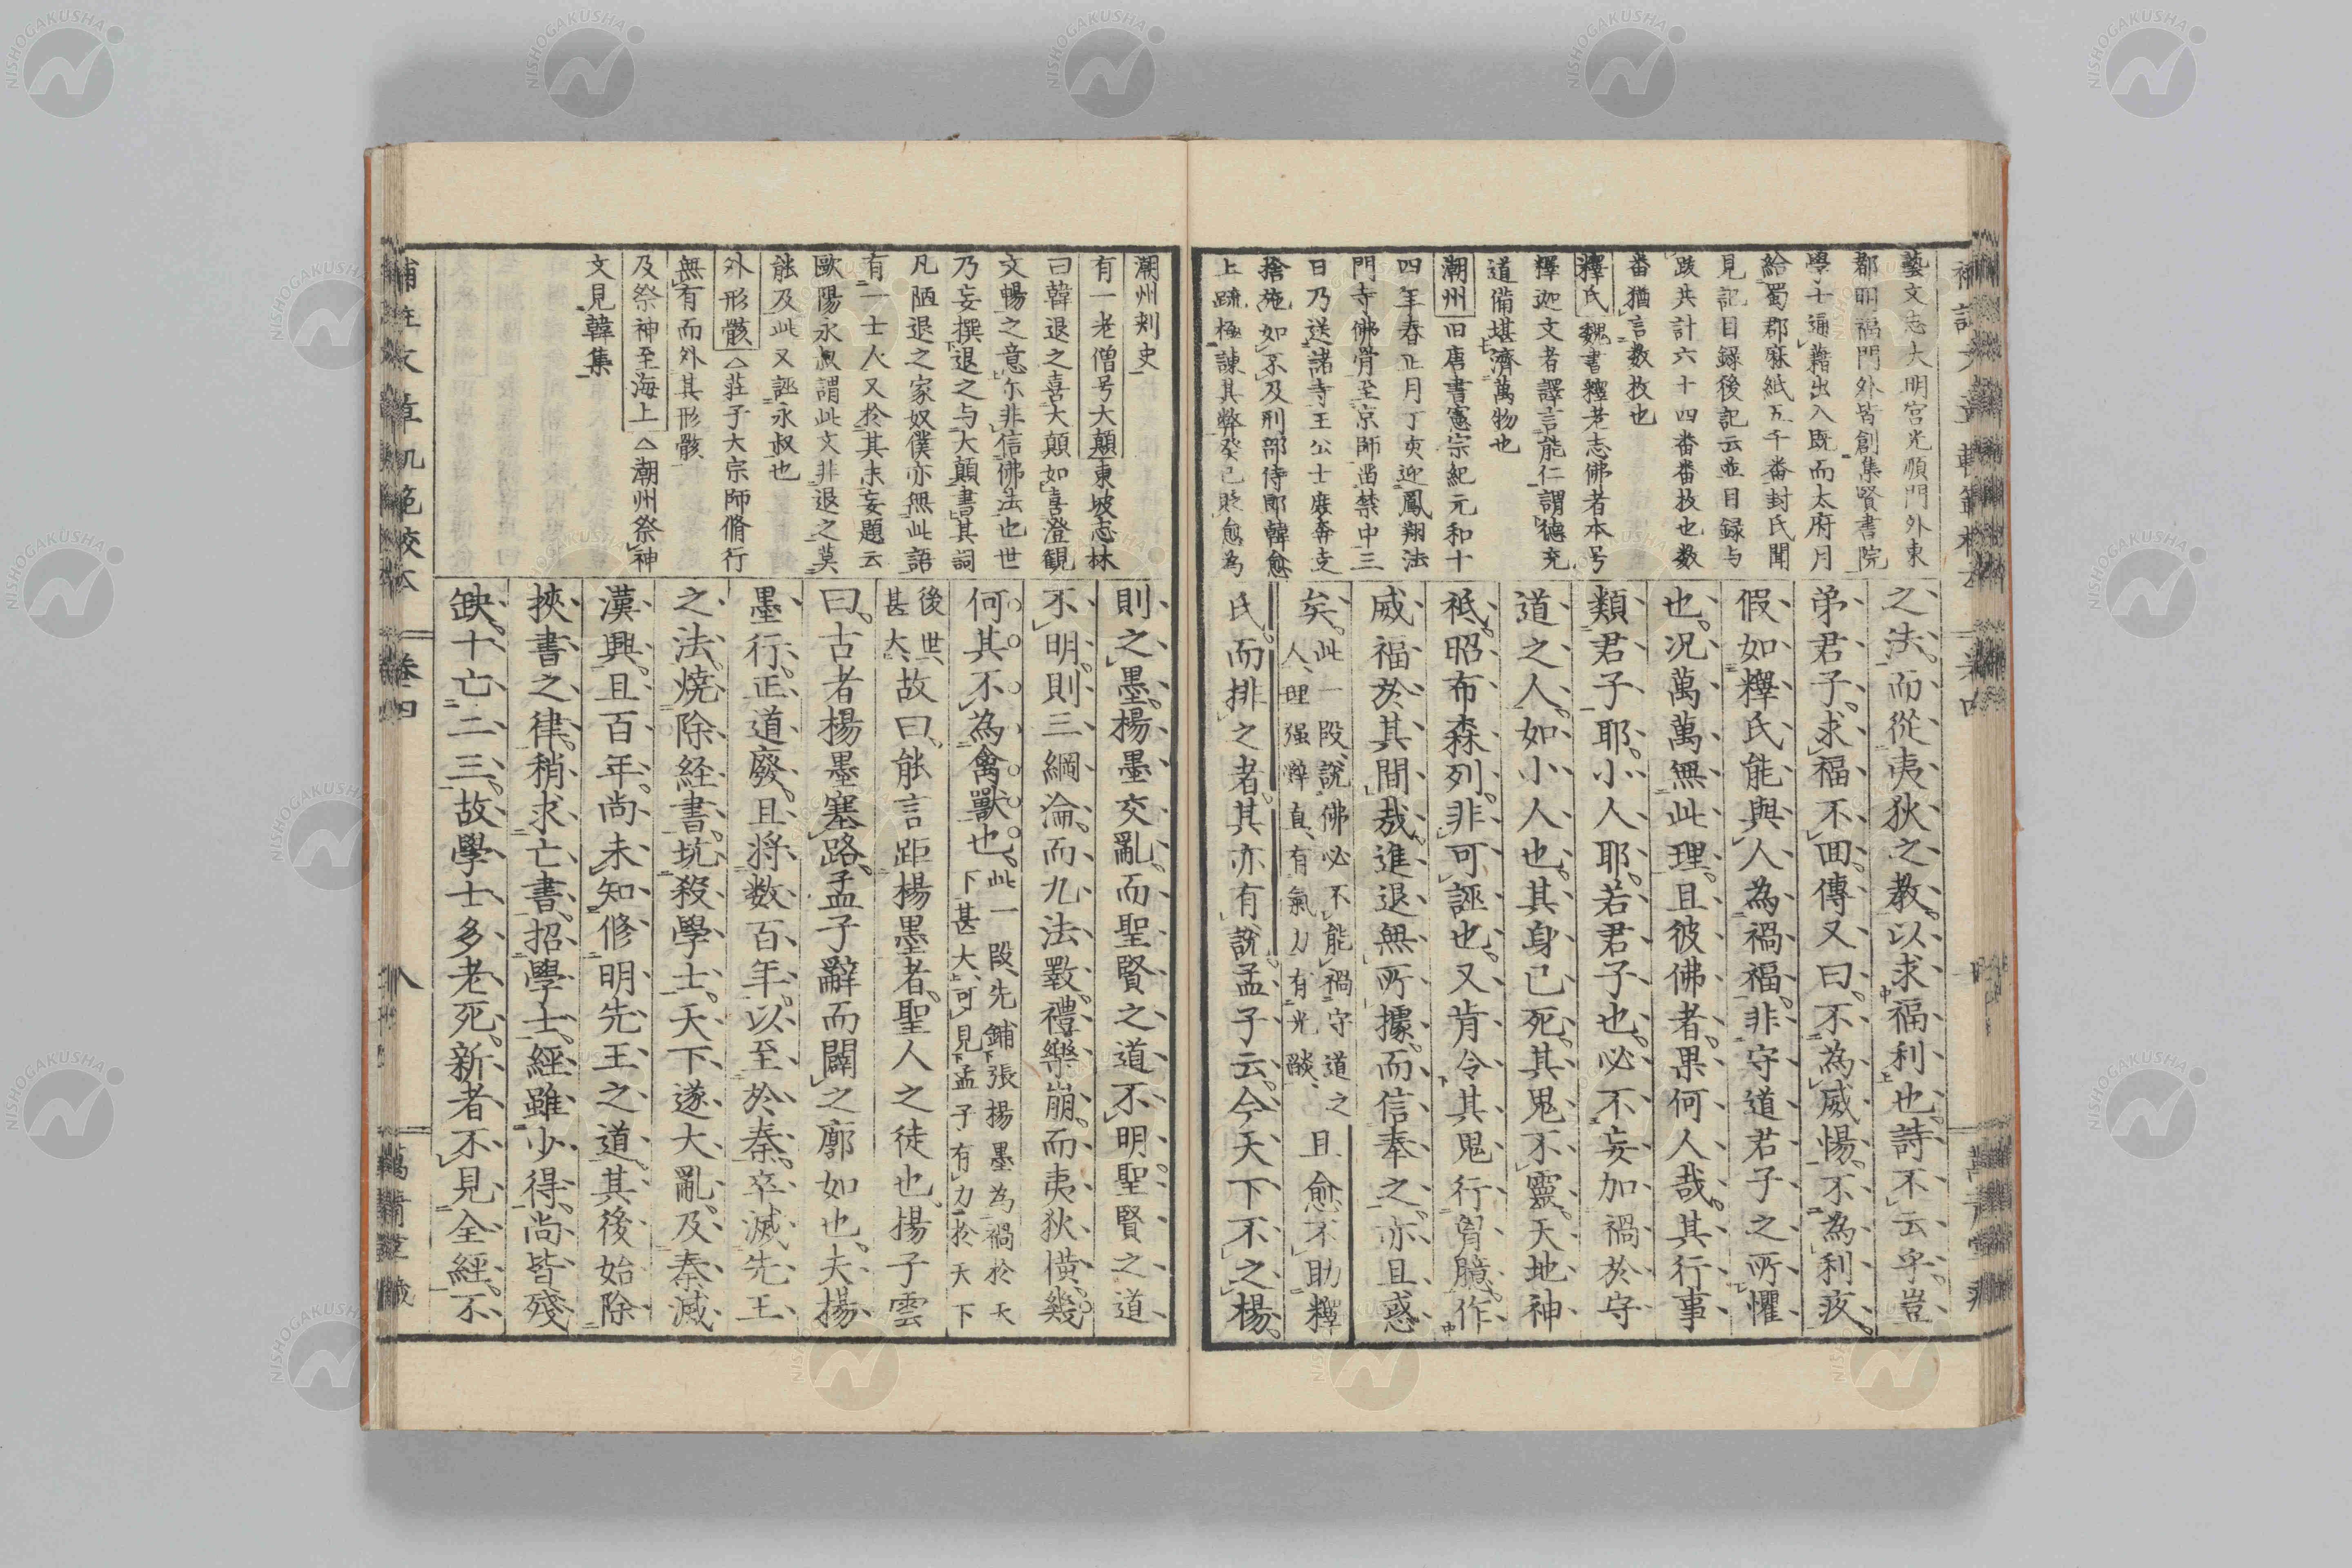 藝文志大明宮光順門外東
都明福門外皆創集賢書院
學士通藉出入既而太府月
給蜀郡麻紙五千番封氏聞
見記目録後記云並目録与
跋共計六十四番番枚也数
番猶言数枚也
釋氏魏書釋老志佛者本号
釋迦文者譯言能仁謂德充
道備堪濟萬物也
潮州旧唐書憲宗紀元和十
四年春正月丁亥迎鳳翔法
門寺佛骨至京師畱禁中三
日乃送諸寺王公士庶奔走
捨施如不及刑部侍郎韓愈
上疏極諫其弊癸已貶愈為
之法而從夷狄之教以求福利也詩不云乎豈
弟君子求福不囬傳又曰不為威惕不為利疚
假如釋氏能與人為禍福非守道君子之所懼
也况萬萬無此理且彼佛者果何人哉其行事
類君子耶小人耶若君子也必不妄加禍於守
道之人如小人也其身已死其鬼不靈天地神
祗昭布森列非可誣也又肯令其鬼行胷臆作
威福於其間哉進退無所據而信奉之亦且惑
矣此一段説佛必不能禍守道之人理强辭直有氣力有光燄且愈不助釋
氏而排之者其亦有説孟子云今天下不之楊
潮州刾史
有一老僧号大顛東坡志林
曰韓退之喜大顛如喜澄観
文暢之意尓非信佛法也世
乃妄撰退之与大顛書其詞
凡陋退之家奴僕亦無此語
有一士人又於其末妄題云
歐陽永叔謂此文非退之莫
能及此又誣永叔也
外形骸△莊子大宗師脩行
無有而外其形骸
及祭神至海上△潮州祭神
文見韓集
則之墨楊墨交亂而聖賢之道不明聖賢之道
不明則三綱淪而九法斁禮樂崩而夷狄橫幾
何其不為禽獸也此一段先鋪張楊墨為禍於天下甚大可見孟子有力於天下
後世甚大故曰能言距楊墨者聖人之徒也揚子雲
曰古者楊墨塞路孟子辭而闢之廓如也夫楊
墨行正道廢且将数百年以至於秦卒滅先王
之法燒除経書坑殺學士天下遂大亂及秦滅
漢興且百年尚未知修明先王之道其後始除
挾書之律稍求亡書招學士經雖少得尚皆殘
缺十亡二三故學士多老死新者不見全經不
補註文章軌範校本
卷四
八